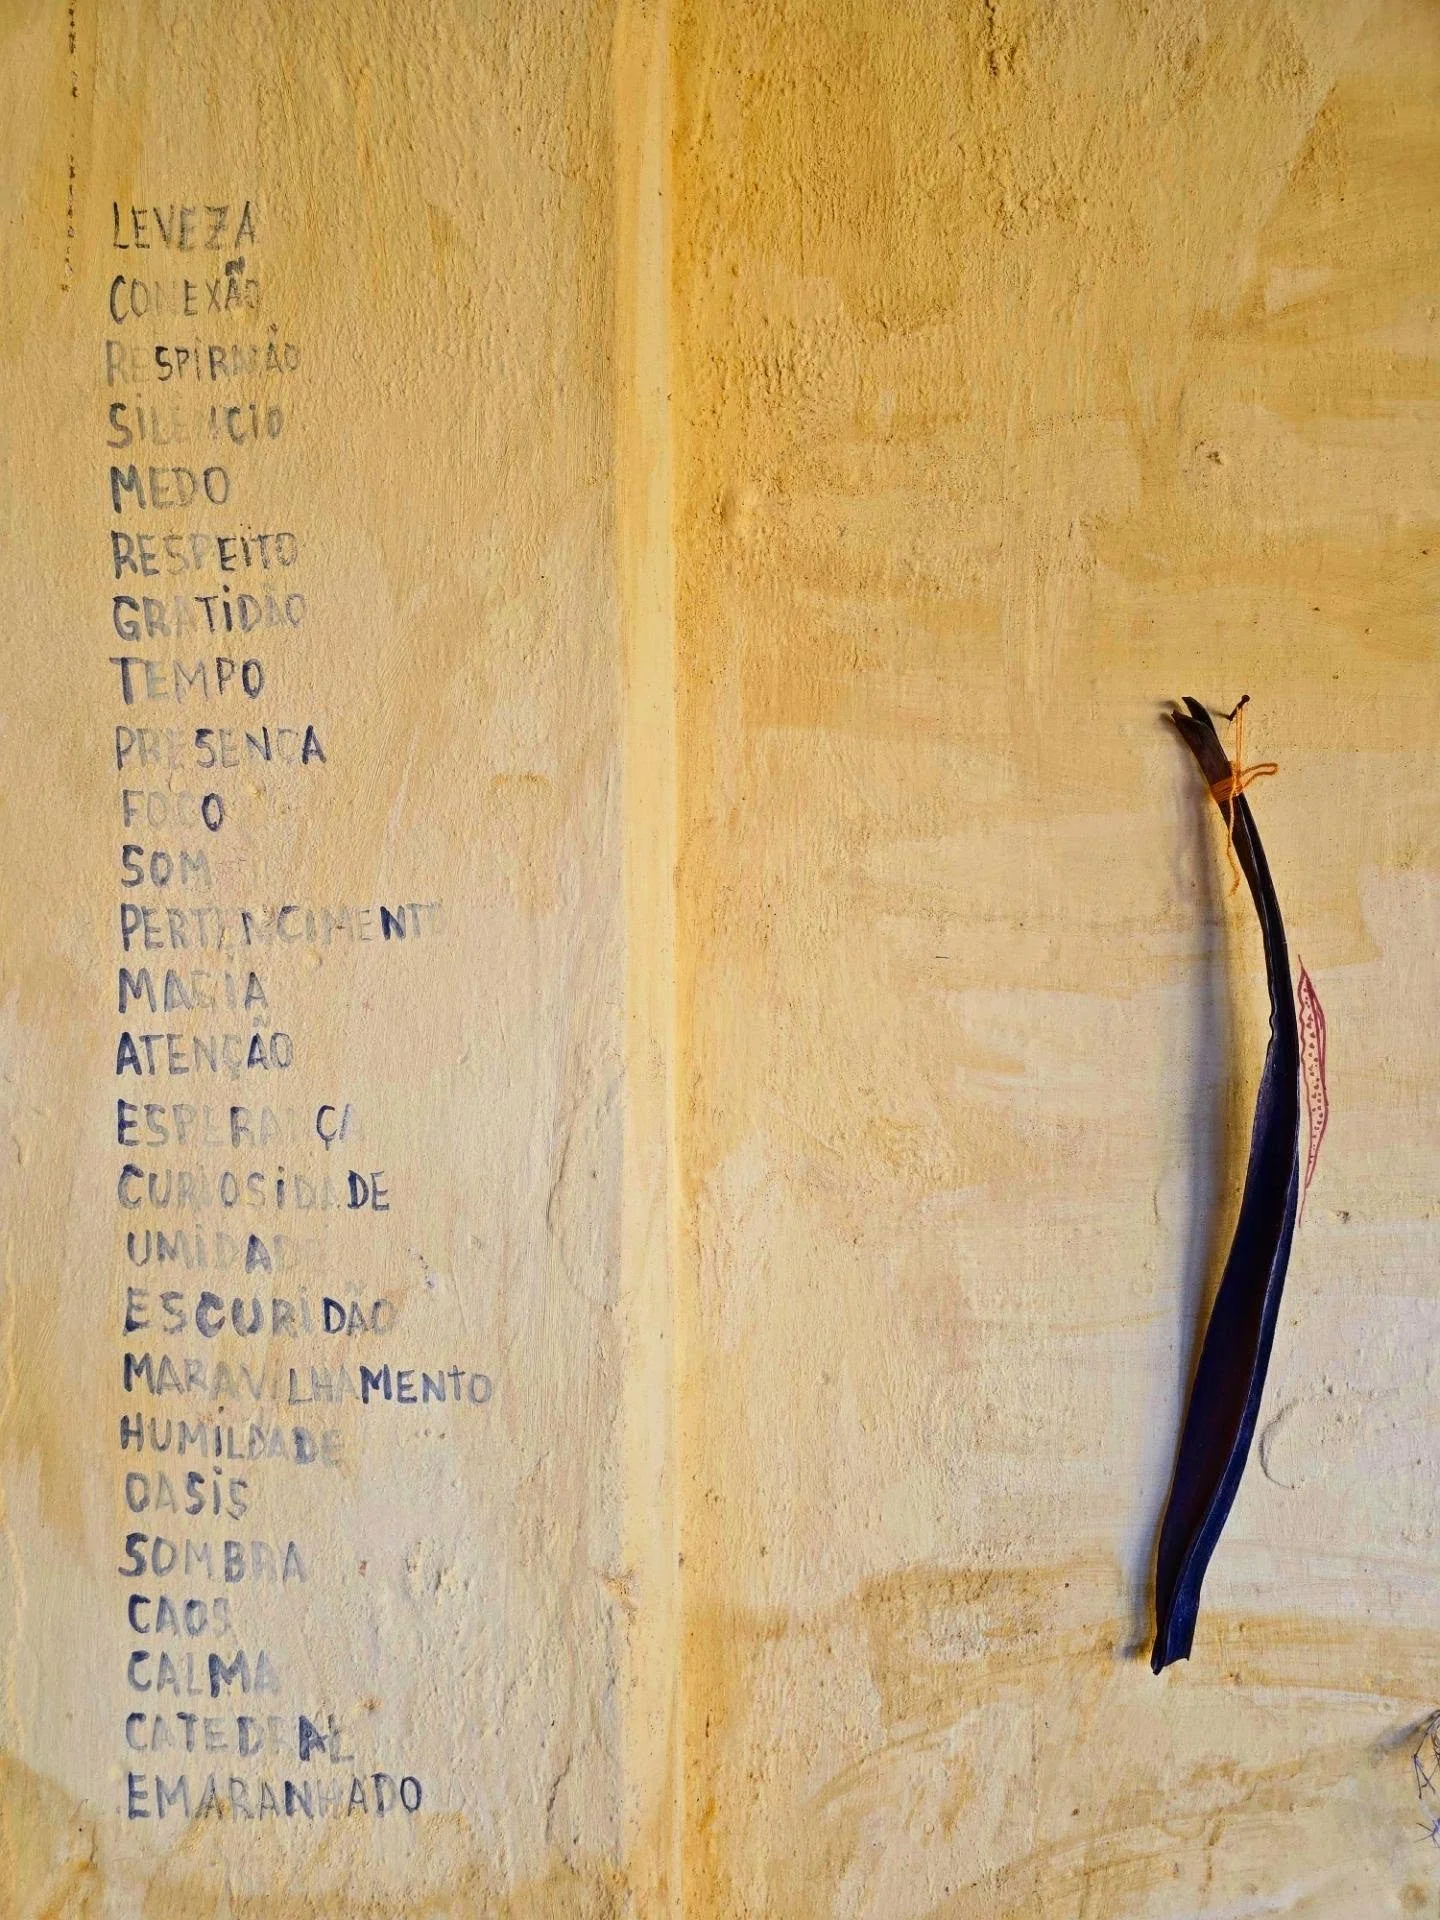 LEVEZA
CONEXÃO
RESPIRAÇÃO
SILÊNCIO
MEDO
RESPEITO
GRATIDÃO
TEMPO
PRESENÇA
FOCO
SOM
PERTENCIMENTO
MAGIA
ATENÇÃO
ESPERANÇA
CURIOSIDADE
UMIDADE
ESCURIDÃO
MARAVILHAMENTO
HUMILDADE
OASIS
SOMBRA
CAOS
CALMA
CATEDRAL
EMARANHADO